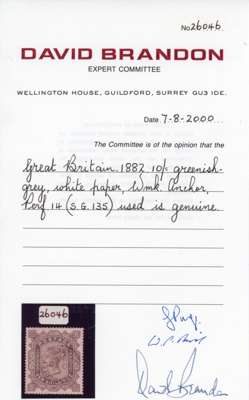 No 26046
DAVID BRANDON
EXPERT COMMITTEE
WELLINGTON HOUSE, GUILDFORD, SURREY GU3 1DE.
Date 7-8-2000
The Committee is of the opinion that the
Great Britain 1882 10/- greenish-
grey, white paper, Wmk. Anchor,
Perf 14 (S.G. 135) used is genuine.
26046
David Brandon